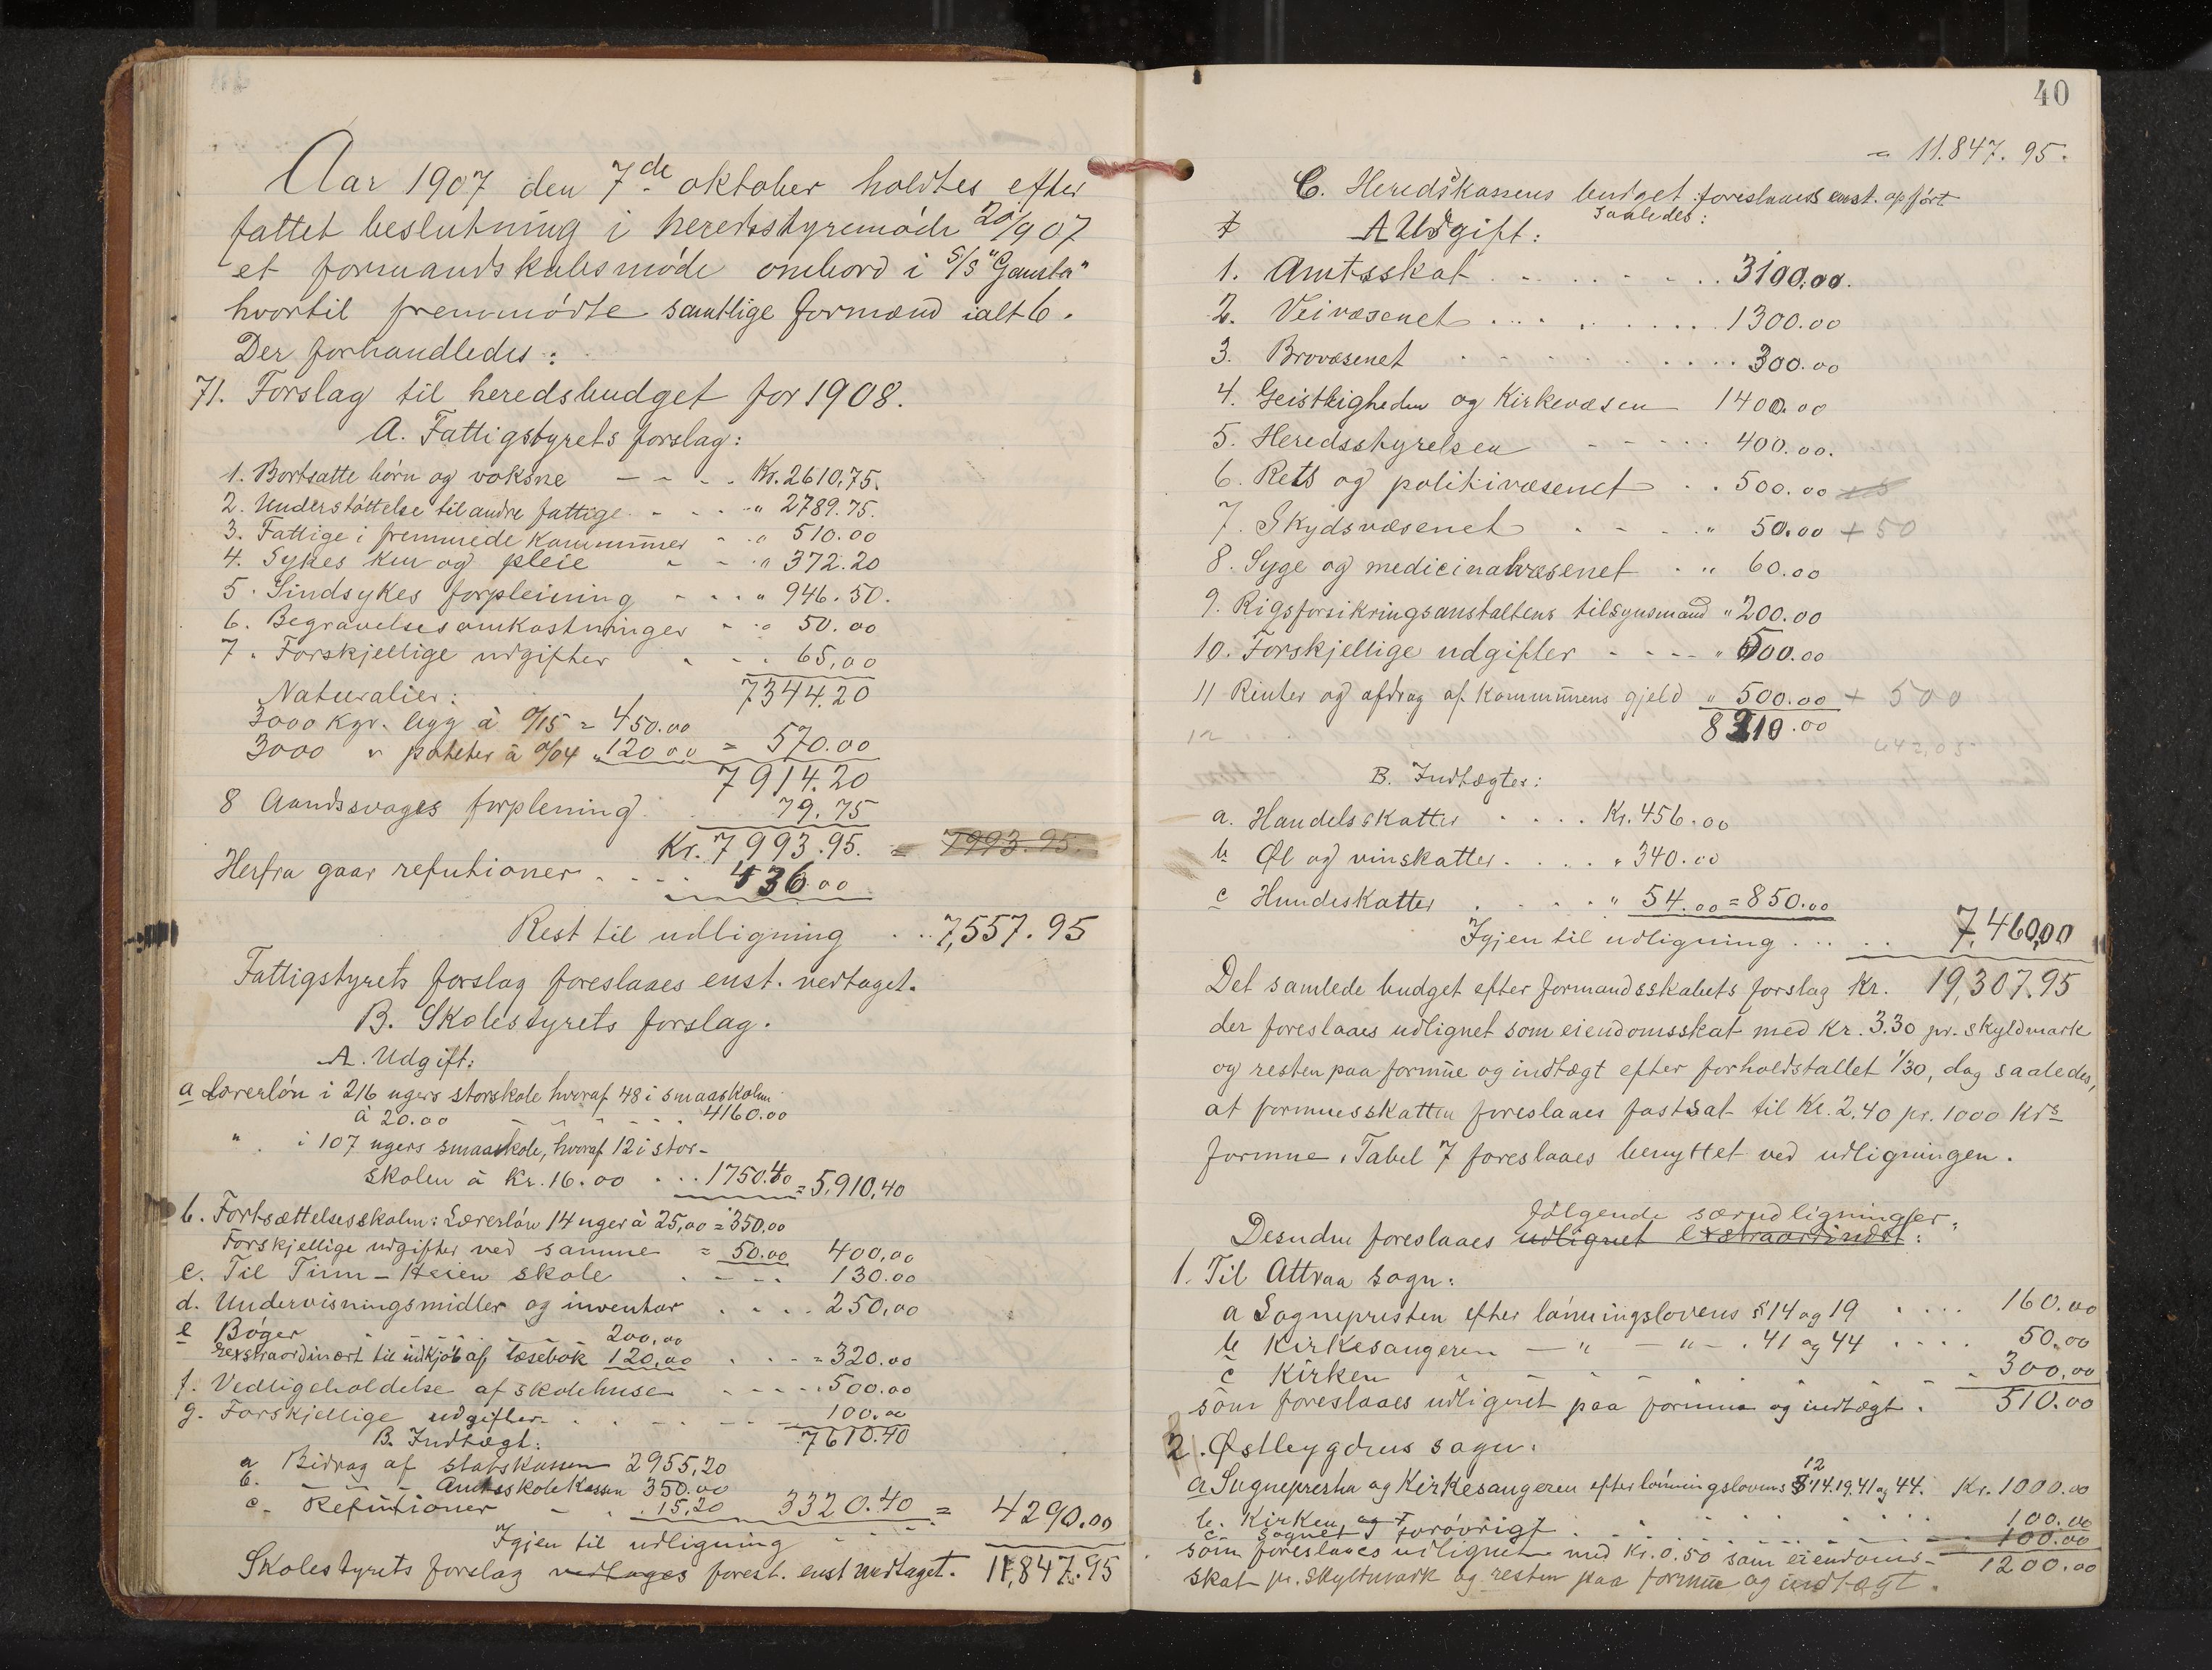 Aar 1907 den 7de oktober holdtes efter
fattet beslutning i heredsstyremøde 20/9 07
et formandskabsmøde ombord i S/S "Gausta"
hvortil fremmødte samtlige formænd ialt 6.
Der forhandledes:
71. Forslag til heredsbudget for 1908.
A. Fattigstyrets forslag:
1. Bortsatte børn og voksne - - - Kr. 2610,75.
2. Understøttelse til andre fattige - - - " 2789.75.
3. Fattige i fremmede Kommuner - " 510.00
4. Sykes kur og pleie - - " 372.20
5. Sindsykes forpleining - - - " 946.50.
6. Begravelsesomkostninger - " 50.00
7. Forskjellige udgifter - - - 65,00
7344.20
Naturalier:
3000 kgr. bygg à 0/15 = 450.00
3000 " poteter à 0/04 " 120 00 = 570.00
7914.20
8 Aandssvages forplening 79.75
Kr. 7993.95. = 7993.95.
Herfra gaar refutioner - - - - 436.00
Rest til udligning . . . 7,557.95
Fattigstyrets forslag foreslaaes enst. vedtaget.
B. Skolestyrets forslag.
A. Udgift:
a Lærerløn i 216 ugers storskole hvoraf 48 i smaaskolen
à 20.00 - - - - - 4160.00
" i 107 ugers smaaskole, hvoraf 12 i stor-
skolen à Kr. 16.00 . . . 1750.40 = 5,910,40
b. Fortsættelsesskolen: Lærerløn 14 uger à 25,00 = 350,00
Forskjellige udgifter ved samme = 50.00 400,00
c. Til Tinn-Heien skole . - - - 130.00
d. Undervisningsmidler og inventar . . . . 250,00
e Bøger - - - - - - 200,00
extraordinært til indkjøb af læsebok 120,00 . . - = 320.00
f. Vedligeholdelse af skolehuse - - - - 500.00
g. Forskjellige udgifter - - - - - 100.00
7610.40
B. Indtægt:
a Bidrag af statskassen 2955,20
b. - - - Amtsskolekassen 350.00
c. Refutioner - - 15,20 3320.40 = 4290.00
Igjen til udligning - - - - -
Skolestyrets forslag vedtages foresl. enst vedtaget. 11,847.95
40
= 11.847.95.
C. Heredskassens budget foreslaaes enst. opført
saaledes:
A Udgift:
1. Amtsskat . . . . . . . 3100.00.
2. Veivæsenet . . . . . . . 1300.00
3. Brovæsenet . . . . . . . 300.00
4. Geistligheden og Kirkevæsen 1400.00
5. Heredsstyrelsen - - - - - 400.00.
6. Rets og politivæsenet . . 500.00
7. Skydsvæsenet . - - - " 50.00 + 50
8. Syge og medicinalvæsenet . " 60.00
9. Rigsforsikringsanstaltens tilsynsmand " 200.00
10. Forskjellige udgifter - - - - " 500.00
11 Renter og afdrag af kommunens gjeld " 500.00 + 500
8310.00
12
B. Indtægter:
a. Handelsskatter . . . . Kr. 456.00
b Øl og vinskatter . . . . " 340.00
c Hundeskatter . . . . " 54.00 = 850.00
Igjen til udligning . . . . . 7,460,00
Det samlede budget efter formandsskabets forslag Kr. 19,307.95
der foreslaaes udlignet som eiendomsskat med Kr. 3.30 pr. skyldmark
og resten paa formue og indtægt efter forholdstallet 1/30, dog saaledes,
at formuesskatten foreslaaes fastsat til Kr. 2.40 pr. 1000 Krs
formue. Tabel 7 foreslaaes benyttet ved udligningen.
følgende særudligninger:
Desuden foreslaaes udlignet extraordinært:
1. Til Attraa sogn:
a Sognepresten efter lønningslovens § 14 og 19 . . . . 160.00
b Kirkesangeren - " - " - . 41 og 44 . . . . 50.00
c Kirken - - - - - - - - 300,00
som foreslaaes udlignet paa formue og indtægt . 510.00
2. Østbygdens sogn:
12
a Sognepresten og Kirkesangeren efter lønningslovens § 14.19.41 og 44. Kr. 1000.00
b. Kirken, og f . . . . . . . 100.00
c sognet forøvrigt . . . . . . 100.00
som foreslaaes udlignet med Kr. 0.50 som eiendoms- 1200.00
skat pr. skyldmark og resten paa formue og indtægt.